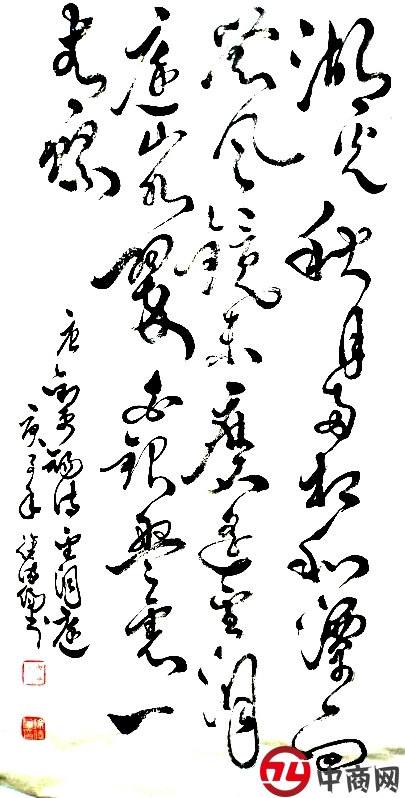 湖光秋月两相和潭面
無风镜未磨遥望洞
庭山水翠白银盘裏一
青螺
唐刘禹锡诗望洞庭
庚子年 书
中商网